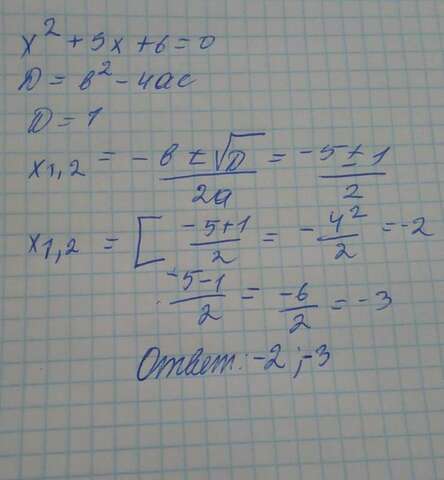 x² + 5x + 6 = 0
D = b² - 4ac
D = 1
x1,2 = -b ± √D / 2a = -5 ± 1 / 2
x1,2 = [ -5+1 / 2 = - 4² / 2 = -2
-5-1 / 2 = -6 / 2 = -3
Ответ: -2 ; -3